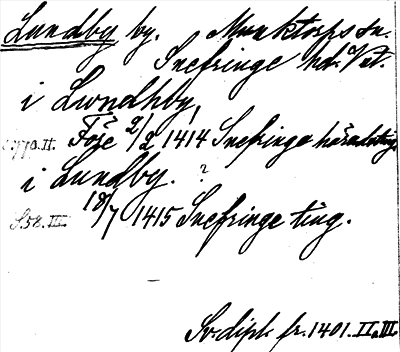 Lundby by. Munktorps sn.
Snefringe hd. Vstl.
i Lwndhby,
Före 2/2 1414 Snefringe häradsting
i Lundby. ?
S. 58. III. 18/7 1415 Snefringe ting.
Sv. dipl. fr. 1401. II o. III.